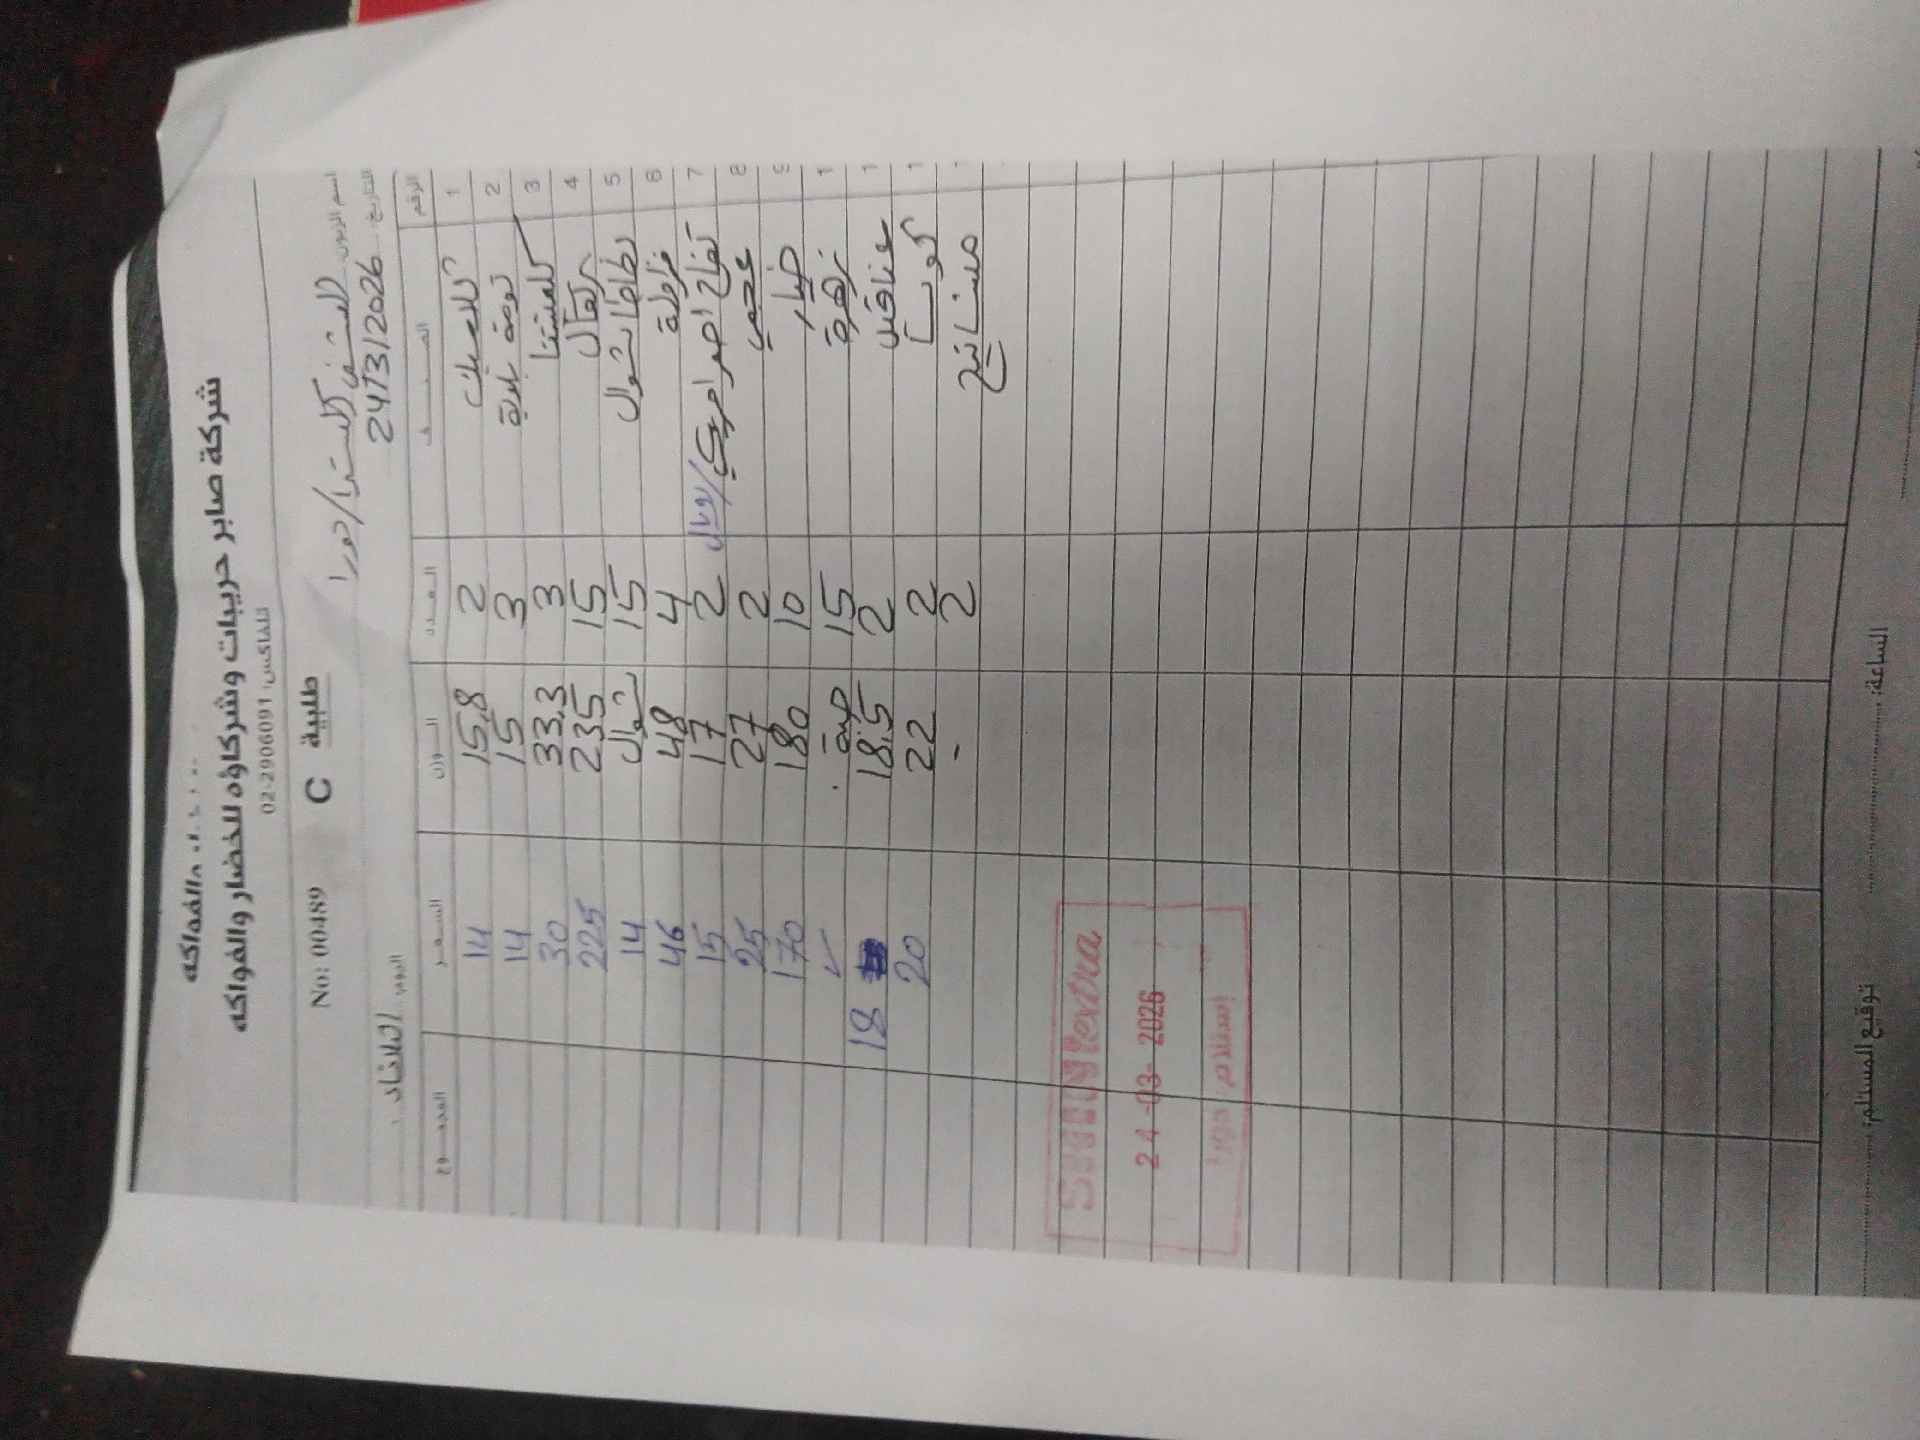 والفواكه
شركة صابر حريبات وشركاؤه للخضار والفواكه
تلفاكس: 02-2906091
No: 00489 C طلبية
اسم الزبون
التاريخ: 24/3/2026
اليوم: الثلاثاء
الرقم الصنف العدد الوزن السعر المجموع
1 2 15,8 14
2 3 15 14
3 كلمنتينا 3 33,3 30
4 برتقال 15 235 225
5 بطاطا شوال 15 شوال 14
6 فراولة 4 48 46
7 تفاح احمر امريكي / رويال 2 17 15
8 2 27 25
9 خيار 10 180 170
1 زهرة 15 حبة ✓
1 2 18.5 18
1 2 22 20
2 -
extra
24-03-2026
إستلام دورا
توقيع المستلم: الساعة: